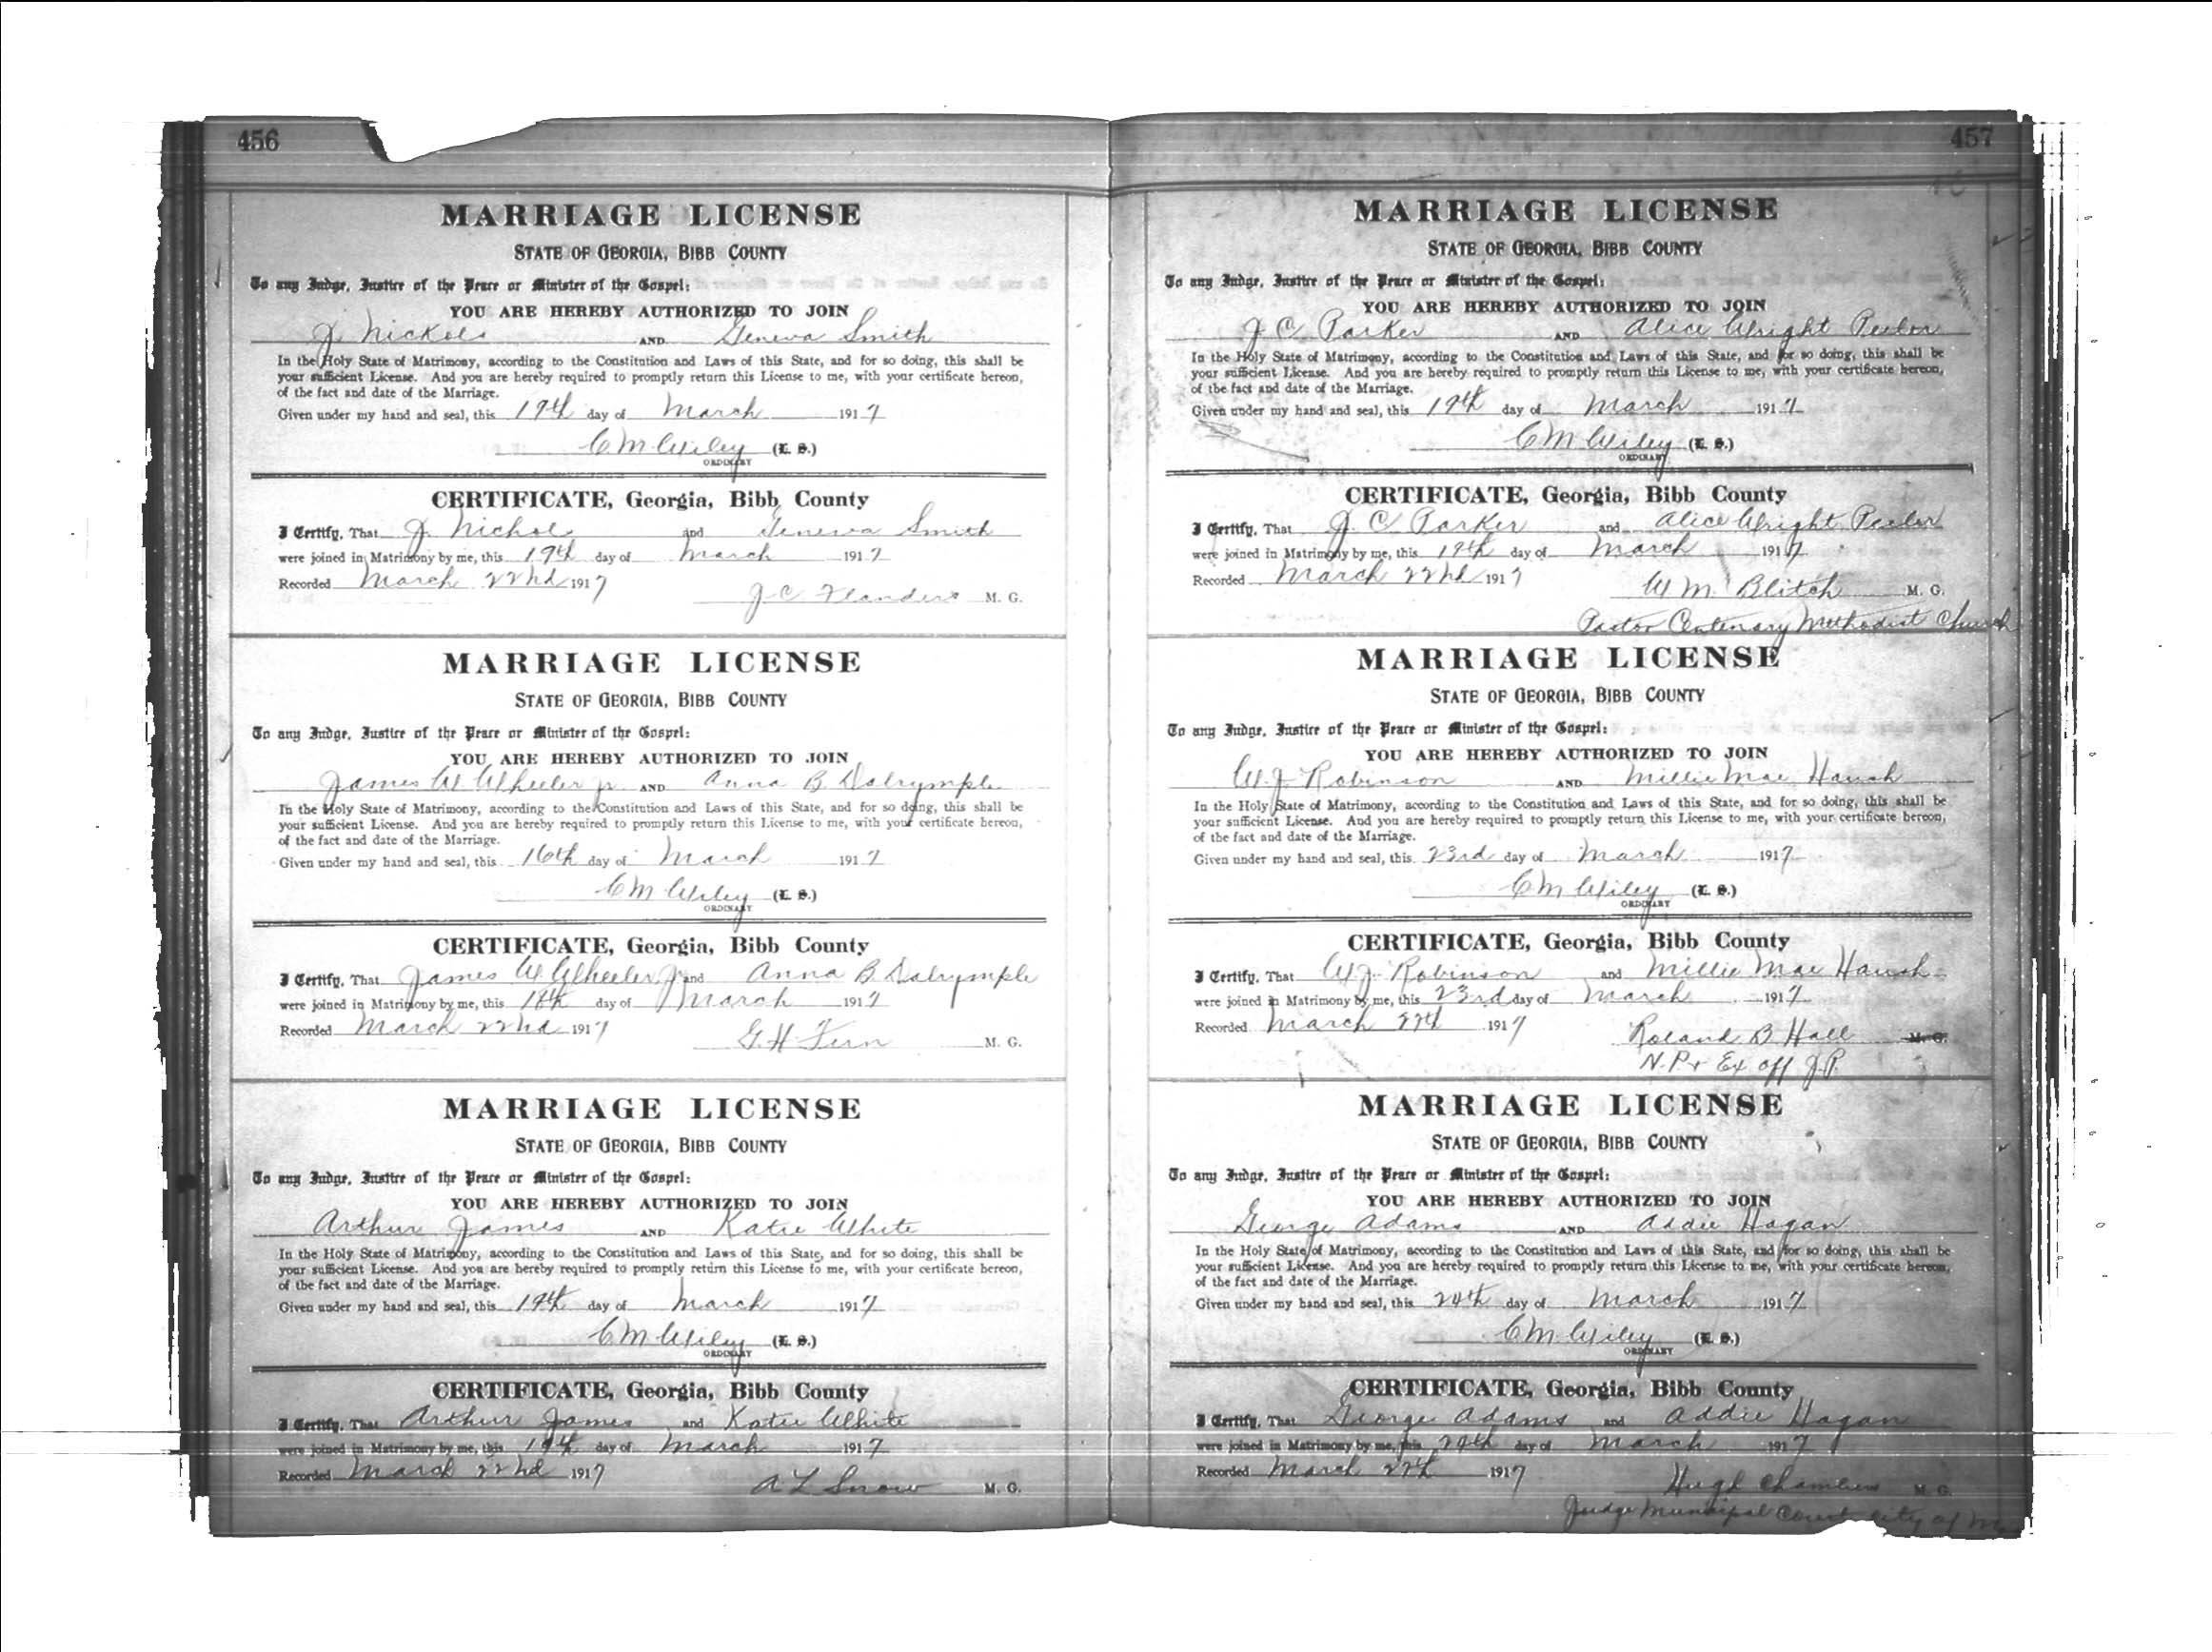 456
MARRIAGE LICENSE
STATE OF GEORGIA, BIBB COUNTY
To any Judge, Justice of the Peace or Minister of the Gospel:
YOU ARE HEREBY AUTHORIZED TO JOIN
J Nickols AND Geneva Smith
In the Holy State of Matrimony, according to the Constitution and Laws of this State, and for so doing, this shall be
your sufficient License. And you are hereby required to promptly return this License to me, with your certificate hereon,
of the fact and date of the Marriage.
Given under my hand and seal, this 19th day of March 1917
C M Wiley (L. S.)
ORDINARY
CERTIFICATE, Georgia, Bibb County
I Certify, That J. Nichols and Geneva Smith
were joined in Matrimony by me, this 19th day of March 1917
Recorded March 22nd 1917
J C Flanders M. G.
MARRIAGE LICENSE
STATE OF GEORGIA, BIBB COUNTY
To any Judge, Justice of the Peace or Minister of the Gospel:
YOU ARE HEREBY AUTHORIZED TO JOIN
James W Wheeler Jr. AND Anna B Dalrymple
In the Holy State of Matrimony, according to the Constitution and Laws of this State, and for so doing, this shall be
your sufficient License. And you are hereby required to promptly return this License to me, with your certificate hereon,
of the fact and date of the Marriage.
Given under my hand and seal, this 16th day of March 1917
C M Wiley (L. S.)
ORDINARY
CERTIFICATE, Georgia, Bibb County
I Certify, That James W. Wheeler Jr and Anna B Dalrymple
were joined in Matrimony by me, this 18th day of March 1917
Recorded March 22nd 1917
G. H. Fern M. G.
MARRIAGE LICENSE
STATE OF GEORGIA, BIBB COUNTY
To any Judge, Justice of the Peace or Minister of the Gospel:
YOU ARE HEREBY AUTHORIZED TO JOIN
Arthur James AND Katie White
In the Holy State of Matrimony, according to the Constitution and Laws of this State, and for so doing, this shall be
your sufficient License. And you are hereby required to promptly return this License to me, with your certificate hereon,
of the fact and date of the Marriage.
Given under my hand and seal, this 19th day of March 1917
C M Wiley (L. S.)
ORDINARY
CERTIFICATE, Georgia, Bibb County
I Certify, That Arthur James and Katie White
were joined in Matrimony by me, this 19th day of March 1917
Recorded March 22nd 1917
A L Snow M. G.
457
MARRIAGE LICENSE
STATE OF GEORGIA, BIBB COUNTY
To any Judge, Justice of the Peace or Minister of the Gospel:
YOU ARE HEREBY AUTHORIZED TO JOIN
J. C Parker AND Alice Wright Peeler
In the Holy State of Matrimony, according to the Constitution and Laws of this State, and for so doing, this shall be
your sufficient License. And you are hereby required to promptly return this License to me, with your certificate hereon,
of the fact and date of the Marriage.
Given under my hand and seal, this 19th day of March 1917
C M Wiley (L. S.)
ORDINARY
CERTIFICATE, Georgia, Bibb County
I Certify, That J. C Parker and Alice Wright Peeler
were joined in Matrimony by me, this 19th day of March 1917
Recorded March 22nd 1917
W M Blitch M. G.
Pastor Centenary Methodist Church
MARRIAGE LICENSE
STATE OF GEORGIA, BIBB COUNTY
To any Judge, Justice of the Peace or Minister of the Gospel:
YOU ARE HEREBY AUTHORIZED TO JOIN
W. J. Robinson AND Millie Mae
In the Holy State of Matrimony, according to the Constitution and Laws of this State, and for so doing, this shall be
your sufficient License. And you are hereby required to promptly return this License to me, with your certificate hereon,
of the fact and date of the Marriage.
Given under my hand and seal, this 23rd day of March 1917
C M Wiley (L. S.)
ORDINARY
CERTIFICATE, Georgia, Bibb County
I Certify, That W. J. Robinson and Millie Mae
were joined in Matrimony by me, this 23rd day of March 1917
Recorded March 1917
Roland B Hall M. G.
N. P & Ex off J. P.
MARRIAGE LICENSE
STATE OF GEORGIA, BIBB COUNTY
To any Judge, Justice of the Peace or Minister of the Gospel:
YOU ARE HEREBY AUTHORIZED TO JOIN
George Adams AND Addie Hagan
In the Holy State of Matrimony, according to the Constitution and Laws of this State, and for so doing, this shall be
your sufficient License. And you are hereby required to promptly return this License to me, with your certificate hereon,
of the fact and date of the Marriage.
Given under my hand and seal, this 24th day of March 1917
C M Wiley (L. S.)
ORDINARY
CERTIFICATE, Georgia, Bibb County
I Certify, That George Adams and Addie Hagan
were joined in Matrimony by me, this 24th day of March 1917
Recorded March 1917
Hugh Chambers M. G.
Judge Municipal Court City of